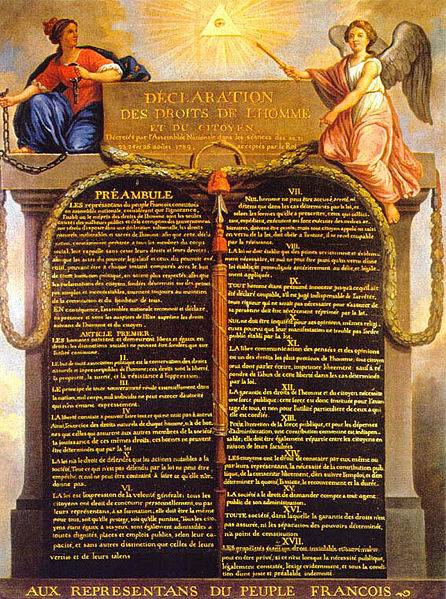 DÉCLARATION
DES DROITS DE L'HOMME
ET DU CITOYEN
Décrétés par l'Assemblée Nationale dans les séances des 20, 21
23, 24 et 26 août 1789, acceptés par le Roi
PRÉAMBULE
LES représentans du peuple François, constitués
en assemblée nationale, considérant que l'ignorance,
l'oubli ou le mépris des droits de l'homme sont les seules
causes des malheurs publics et de la corruption des gouvernemens
ont résolu d'exposer dans une déclaration solemnelle, les droits
naturels, inaliénables et sacrés de l'homme: afin que cette décla-
ration, constamment présente à tous les membres du corps
social, leur rappelle sans cesse leurs droits et leurs devoirs;
afin que les actes du pouvoir législatif et ceux du pouvoir exé-
cutif, pouvant être à chaque instant comparés avec le but
de toute institution politique, en soient plus respectés; afin que
les réclamations des citoyens, fondées désormais sur des princi-
pes simples et incontestables, tournent toujours au maintien
de la constitution et du bonheur de tous.
EN conséquence, l'assemblée nationale reconnoit et déclare,
en présence et sous les auspices de l'Etre suprême les droits
suivans de l'homme et du citoyen.
ARTICLE PREMIER.
LES hommes naissent et demeurent libres et égaux en
droits. les distinctions sociales ne peuvent être fondées que sur
l'utilité commune.
II.
LE but de toute association politique est la conservation des droits
naturels et imprescriptibles de l'homme; ces droits sont la liberté,
la propriété, la sureté, et la résistance à l'oppression.
III.
LE principe de toute souveraineté réside essentiellement dans
la nation, nul corps, nul individu ne peut exercer d'autorité
qui n'en émane expressément.
IV.
LA liberté consiste à pouvoir faire tout ce qui ne nuit pas à autrui
Ainsi, l'exercice des droits naturels de chaque homme, n'a de bor-
nes que celles qui assurent aux autres membres de la société
la jouissance de ces mêmes droits; ces bornes ne peuvent
être déterminées que par la loi
V.
LA loi n'a le droit de défendre que les actions nuisibles à la
société. Tout ce qui n'est pas défendu par la loi ne peut être
empêché, et nul ne peut être contraint à faire ce qu'elle n'or-
donne pas.
VI.
LA loi est l'expression de la volonté générale; tous les
citoyens ont droit de concourir personnellement, ou par
leurs représentans, à sa formation; elle doit être la même
pour tous, soit qu'elle protege, soit qu'elle punisse, Tous les citoy-
ens étant égaux à ses yeux, sont également admissibles à
toutes dignités, places et emplois publics, selon leur ca-
pacité, et sans autres distinction que celles de leurs
vertus et de leurs talens
VII.
NUL homme ne peut être accusé, arrêté, ni
détenu que dans les cas déterminés par la loi, et
selon les formes qu'elle a prescrites, ceux qui sollici-
tent, expédient, exécutent ou font exécuter des ordres ar-
bitraires, doivent être punis; mais tout citoyen appelé ou saisi
en vertu de la loi, doit obéir à l'instant, il se rend coupable
par la résistance.
VIII.
LA loi ne doit établir que des peines strictement et évidem-
ment nécessaires, et nul ne peut être puni qu'en vertu d'une
loi établie et promulguée antérieurement au délit, et légale-
ment appliquée.
IX.
TOUT homme étant présumé innocent jusqu'à ce qu'il ait
été déclaré coupable, s'il est jugé indispensable de l'arrêter,
toute rigueur qui ne seroit pas nécessaire pour s'assurer de
sa personne doit être sévèrement réprimée par la loi.
X.
NUL ne doit être inquiété pour ses opinions, mêmes reli-
gieuses pourvu que leur manifestation ne trouble pas l'ordre
public établi par la loi.
XI.
LA libre communication des pensées et des opinions
est un des droits les plus précieux de l'homme; tout citoyen
peut donc parler écrire, imprimer librement; sauf à ré-
pondre de l'abus de cette liberté dans les cas déterminés
par la loi.
XII.
LA garantie des droits de l'homme et du citoyen nécessite
une force publique; cette force est donc instituée pour l'avan-
tage de tous, et non pour l'utilité particulière de ceux à qui
elle est confiée.
XIII.
POUR l'entretien de la force publique, et pour les dépenses
d'administration, une contribution commune est indispen-
sable; elle doit être également répartie entre les citoyens en
raison de leurs facultés.
XIV.
LES citoyens ont le droit de constater par eux même ou
par leurs représentans, la nécessité de la contribution pub-
lique, de la consentir librement, d'en suivre l'emploi, et d'en
déterminer la quotité, l'assiette, le recouvrement et la durée.
XV.
LA société a le droit de demander compte à tout agent
public de son administration.
XVI.
TOUTE société, dans laquelle la garantie des droits n'est
pas assurée, ni les séparation des pouvoirs déterminée,
n'a point de constitution
XVII.
LES propriétés étant un droit inviolable et sacré nul ne
peut en être privé, si ce n'est lorsque la nécessité publique,
légalement constatée, l'exige evidemment, et sous la condi-
tion d'une juste et préalable indemnité.
AUX REPRESENTANS DU PEUPLE FRANCOIS